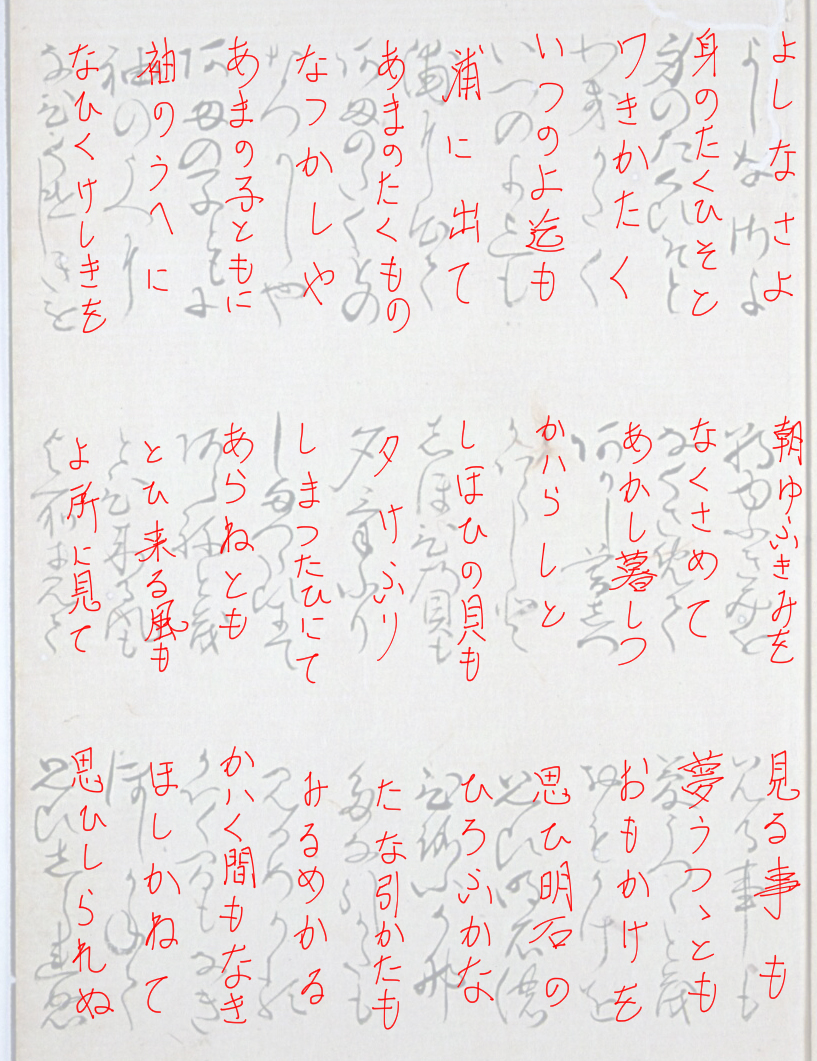 よしなさよ
朝ゆふきみを
見る事も
身のたくひそと
なくさめて
夢うつゝとも
ワきかたく
あかし暮しつ
おもかけを
いつのよ迄も
かハらしと
思ひ明石の
浦に出て
しほひの貝も
ひろふかな
あまのたくもの
夕けふり
たな引かたも
なつかしや
しまつたひにて
みるめかる
あまの子ともに
あらねとも
かハく間もなき
袖のうへに
とひ来る風も
ほしかねて
なひくけしきを
よ所に見て
思ひしられぬ